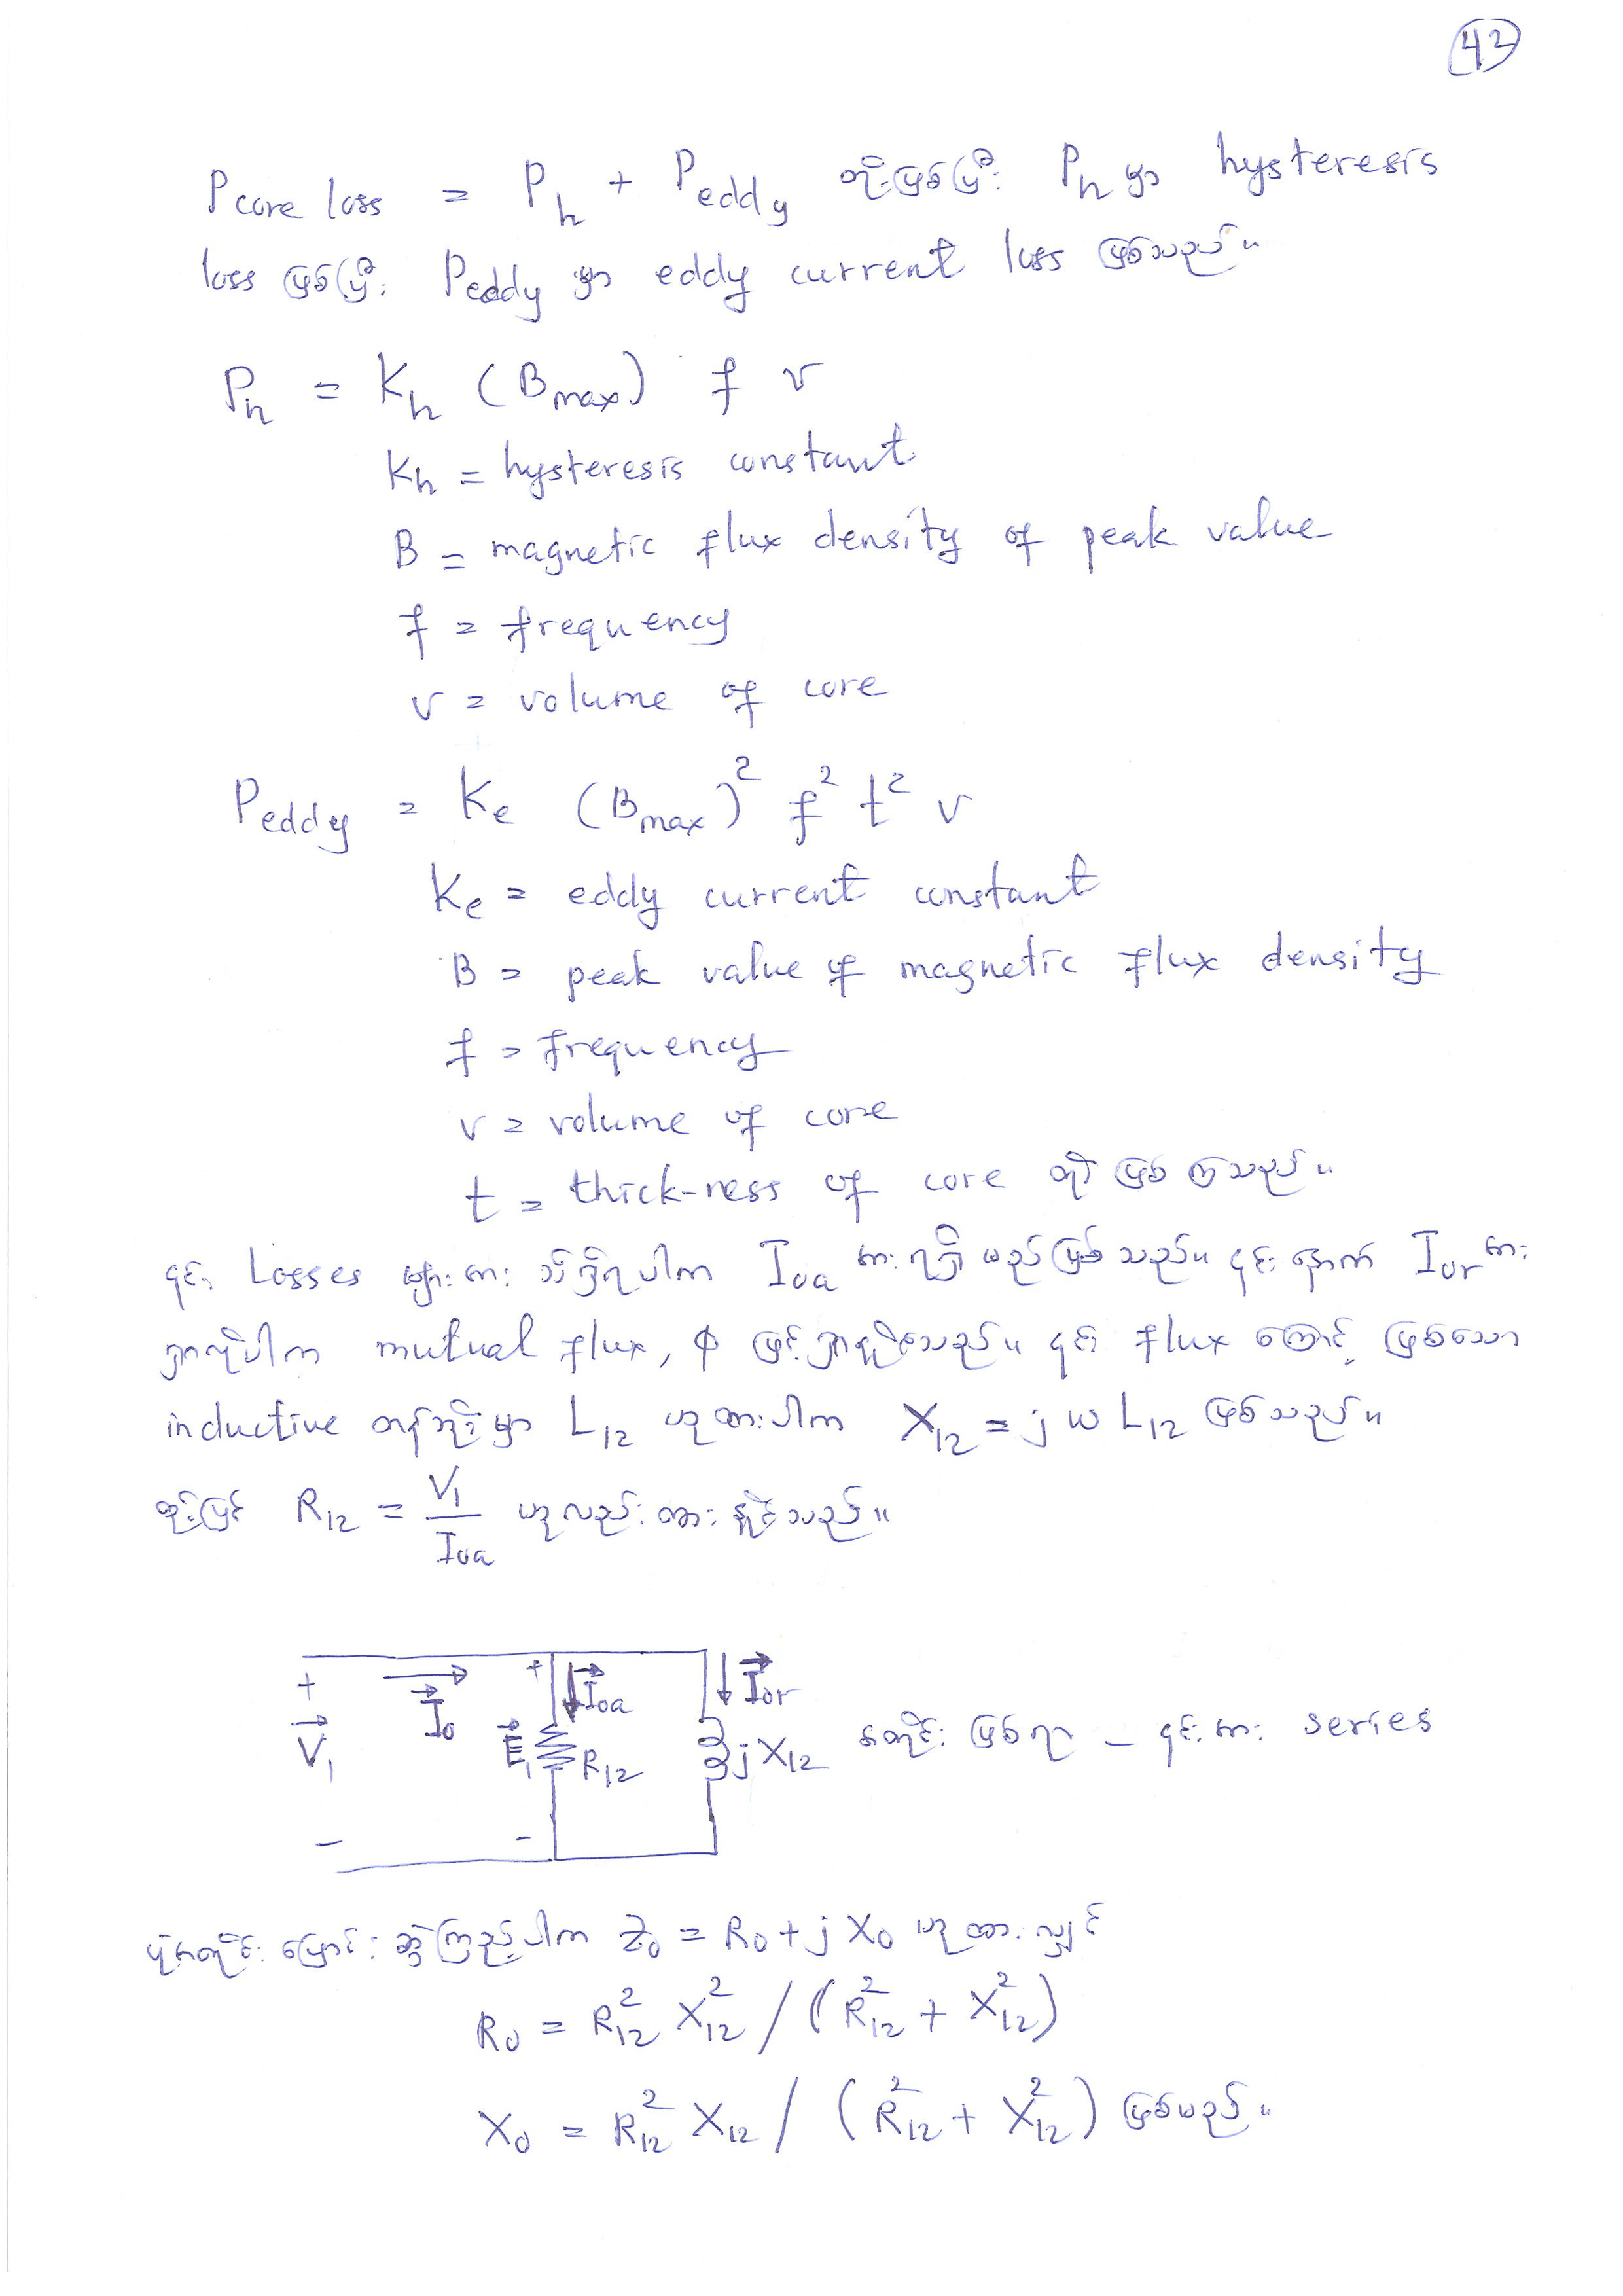 42
P core loss = P_h + P_eddy တို့ဖြစ်ပြီး P_h မှာ hysteresis
loss ဖြစ်ပြီး P_eddy မှာ eddy current loss ဖြစ်သည်။
P_h = K_h (B_max) f v
K_h = hysteresis constant
B = magnetic flux density of peak value
f = frequency
v = volume of core
P_eddy = K_e (B_max)² f² t² v
K_e = eddy current constant
B = peak value of magnetic flux density
f = frequency
v = volume of core
t = thick-ness of core တို့ ဖြစ်ကြသည်။
၎င်း Losses များအား သိရှိရပါက I_0a အားရရှိမည်ဖြစ်သည်။ ၎င်းနောက် I_0r အား
ရှာလိုပါက mutual flux, φ ဖြင့်ရှာနိုင်သည်။ ၎င်း flux ကြောင့် ဖြစ်သော
inductive တန်ဘိုးမှာ L_12 ဟုထားပါက X_12 = j w L_12 ဖြစ်သည်။
ထို့ပြင် R_12 = V_1 / I_0a ဟုလည်းထားနိုင်သည်။
+ I_0 + I_0a I_0r
V_1 E_1 R_12 jX_12 အတိုင်းဖြစ်ရာ – ၎င်းအား series
- -
ပုံစံတိုင်းပြောင်းဆွဲကြည့်ပါက Z_0 = R_0 + j X_0 ဟုထားလျှင်
R_0 = R_12² X_12² / (R_12² + X_12²)
X_0 = R_12² X_12 / (R_12² + X_12²) ဖြစ်မည်။